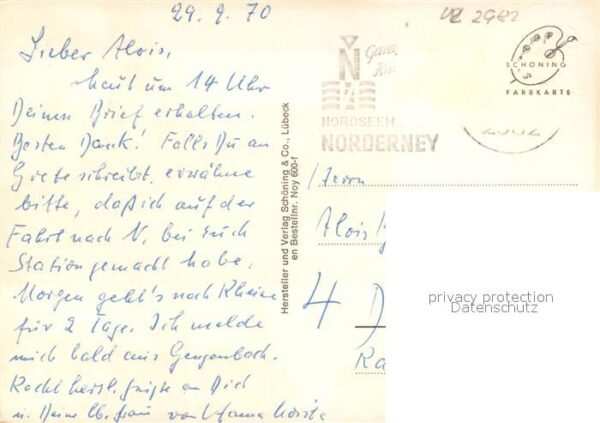 29. 9. 70
Lieber Alois,
heut um 14 Uhr
Deinen Brief erhalten.
Besten Dank! Falls Du an
Grete schreibst, erwähne
bitte, daß ich auf der
Fahrt nach N. bei Euch
Station gemacht habe.
Morgen geht's nach Rheine
für 2 Tage. Ich melde
mich bald aus Gengenbach.
Recht herzl. Grüße an Dich
u. Deine lb. Frau von
Hersteller und Verlag Schöning & Co., Lübeck
en Bestellnr. Noy 600-f
VZ 2982
N
Ganz
NORDSEEH
NORDERNEY
2982
SCHÖNING
FARBKARTE
Herrn
Alois
4 D
Ka
privacy protection
Datenschutz